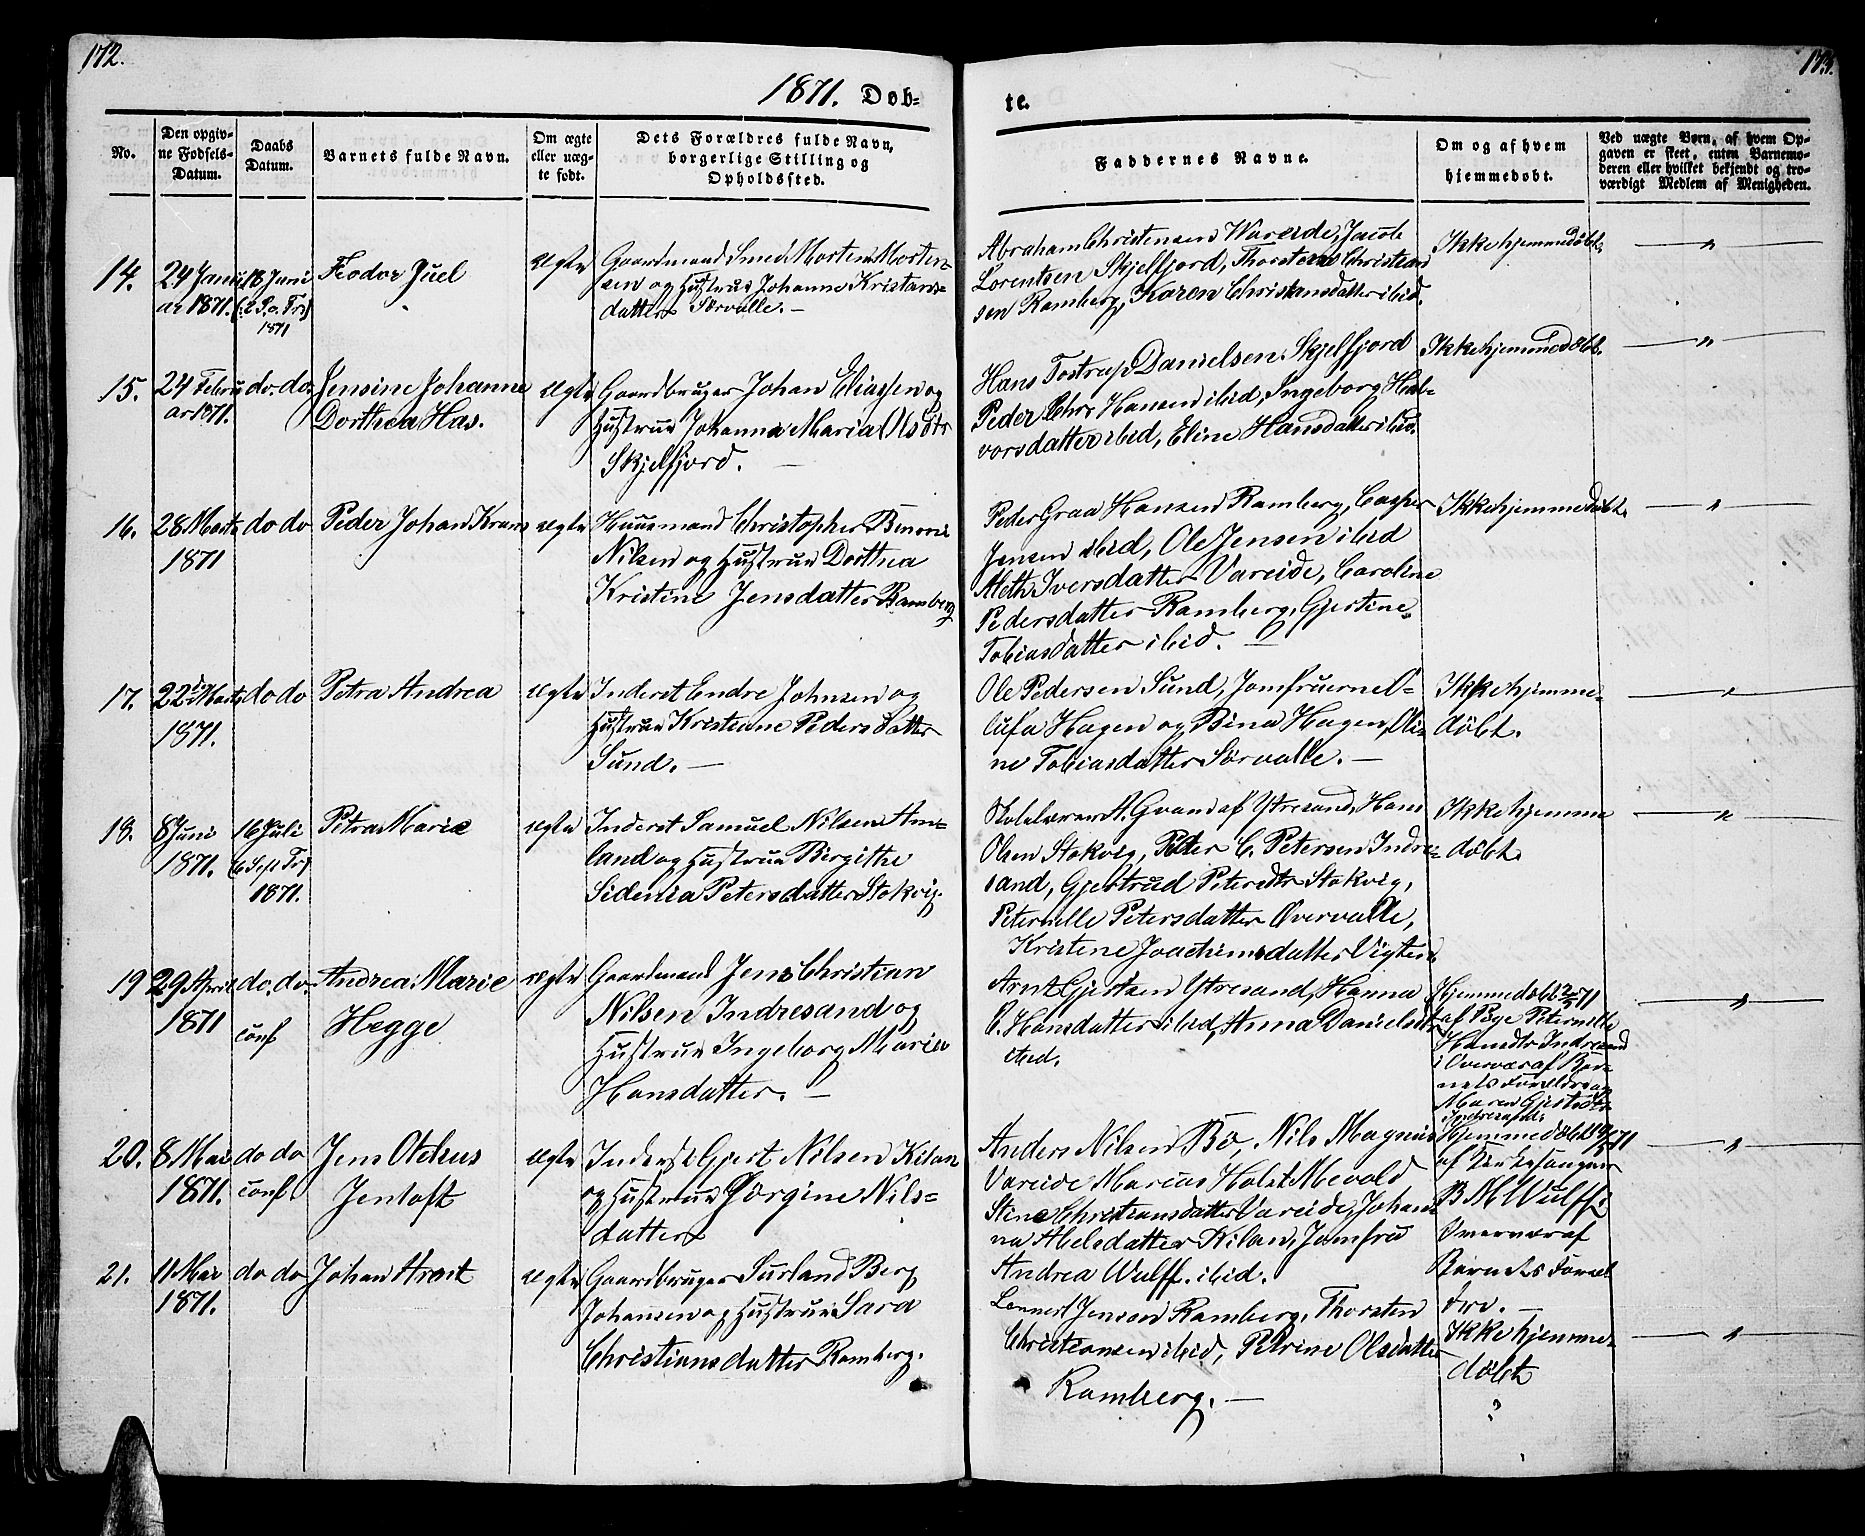 172.
173.
1871. Døb-
te.
No.
Den opgiv-
ne Fødsels-
Datum.
Daabs
Datum.
Barnets fulde Navn.
Om ægte
eller uæg-
te født.
Dets Forældres fulde Navn,
borgerlige Stilling og
Opholdssted.
Faddernes Navne.
Om og af hvem
hjemmedøbt.
Ved uægte Børn, af hvem Op-
gaven er skeet, enten Barnemo-
deren eller hvilket bekjendt og tro-
værdigt Medlem af Menigheden.
14.
24 Janu
ar 1871.
18 Juni
(2 S. e. Tr)
1871
Feodor Juel
ægte
Gaardmand Smed Morten Morten-
sen og Hustrue Johanne Kristans-
datter Sørvalle. —
Abraham Christensen Wareide, Jacob
Lorentsen Skjelfjord, Thorsten Christian
sen Ramberg, Karen Christansdatter ibid.
Ikke hjemmedøbt.
— " —
15.
24 Febru
ar 1871.
do. do.
Jensine Johanne
Dorthea Has.
ægte
Gaardbruger Johan Eliassen og
Hustrue Johanna Maria Olsdtr
Skjelfjord. —
Hans Tostrup Danielsen Skjelfjord
Peder Chrs Hansen ibid, Ingeborg Hal-
vorsdatter ibid, Eline Hansdatter ibid.
Ikke hjemmedøbt.
— " —
16.
28 Marts
1871
do do
Peder Johan Krane
ægte
Huusmand Christopher Benoni
Nilsen og Hustrue Dorthea
Kristine Jensdatter Ramberg
Peder Graa Hansen Ramberg, Casper
Jensen ibid, Ole Jensen ibid
Aleth Iversdatter Vareide, Caroline
Pedersdatter Ramberg, Gjertine
Tobiasdatter ibid. —
Ikke hjemmedøbt.
— " —
17.
22de Marts
1871.
do do
Petra Andrea
ægte
Inderst Endre Johnsen og
Hustrue Kristiane Peders datter
Sund. —
Ole Pedersen Sund, Jomfruerne O-
lufa Hagen og Bina Hagen, Oli-
ne Tobiasdatter Sørvalle. —
Ikke hjemme-
døbt.
— " —
18.
8 Juni
1871.
16 Juli
(6 S e Tr)
1871.
Petra Marie
ægte
Inderst Samuel Nilsen Am-
land og Hustrue Birgithe
Sidenia Petersdatter Stokvig.
Skolelærer A. Gran af Ytresand, Hans
Olsen Stokvig, Peter C. Petersen Indre-
sand, Gjertrud Petersdtr Stokvig,
Peternille Petersdatter Øvervalle,
Kristine Joachimsdatter Vigten
Ikke hjemme
døbt.
— " —
19
29 April
1871
do. do.
conf
Andrea Marie
Hegge
ægte
Gaardmand Jens Christian
Nilsen Indresand og
Hustrue Ingeborg Marie
Hansdatter. —
Arnt Gjertsen Ytresand, Hanna
C. Hansdatter ibid, Anna Danielsdtr
ibid.
Hjemmedøbt 2/5 71
af Pige Peternille
Hansdtr Indresand
i Overvær af Bar-
nets Forældre og
Maren Gjertsdtr
Indresand.
— " —
20.
8 Mai
1871.
do do
conf
Jens Otehus
Jentoft
ægte
Inderst Gjert Nilsen Kilan
og Hustrue Jørgine Nils-
datter
Anders Nilsen Bø, Nils Magnus
Vareide Marcus Holst Mevold
Stine Christiansdatter Vareide, Johan-
na Abelsdatter Kilan, Jomfru
Andrea Wulff. ibid.
Hjemmedøbt 71
af Kirkesanger
B M Wulff i
Overvær af
Barnets Foræl
dre. —
— " —
21.
11 Mai
1871.
do do
Johan Arnt
ægte
Gaardbruger Surland Berg
Johansen og Hustrue Sara
Christiansdatter Ramberg.
Lennert Jensen Ramberg, Thorsten
Christiansen ibid, Petrine Olsdatter
Ramberg. —
Ikke hjemme-
døbt
— " —